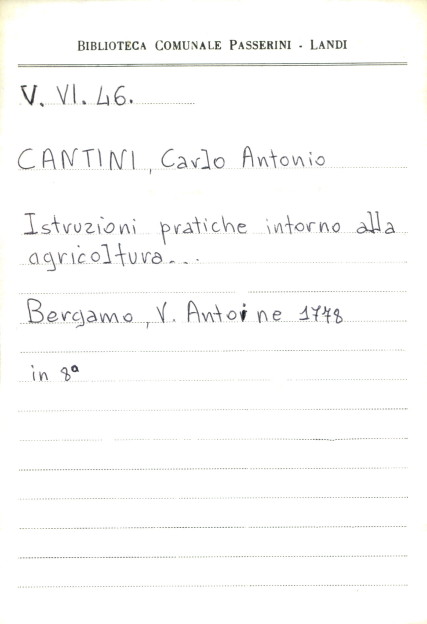 BIBLIOTECA COMUNALE PASSERINI - LANDI
V. VI. 46.
CANTINI, Carlo Antonio
Istruzioni pratiche intorno alla
agricoltura...
Bergamo, V. Antoine 1778
in 8ª